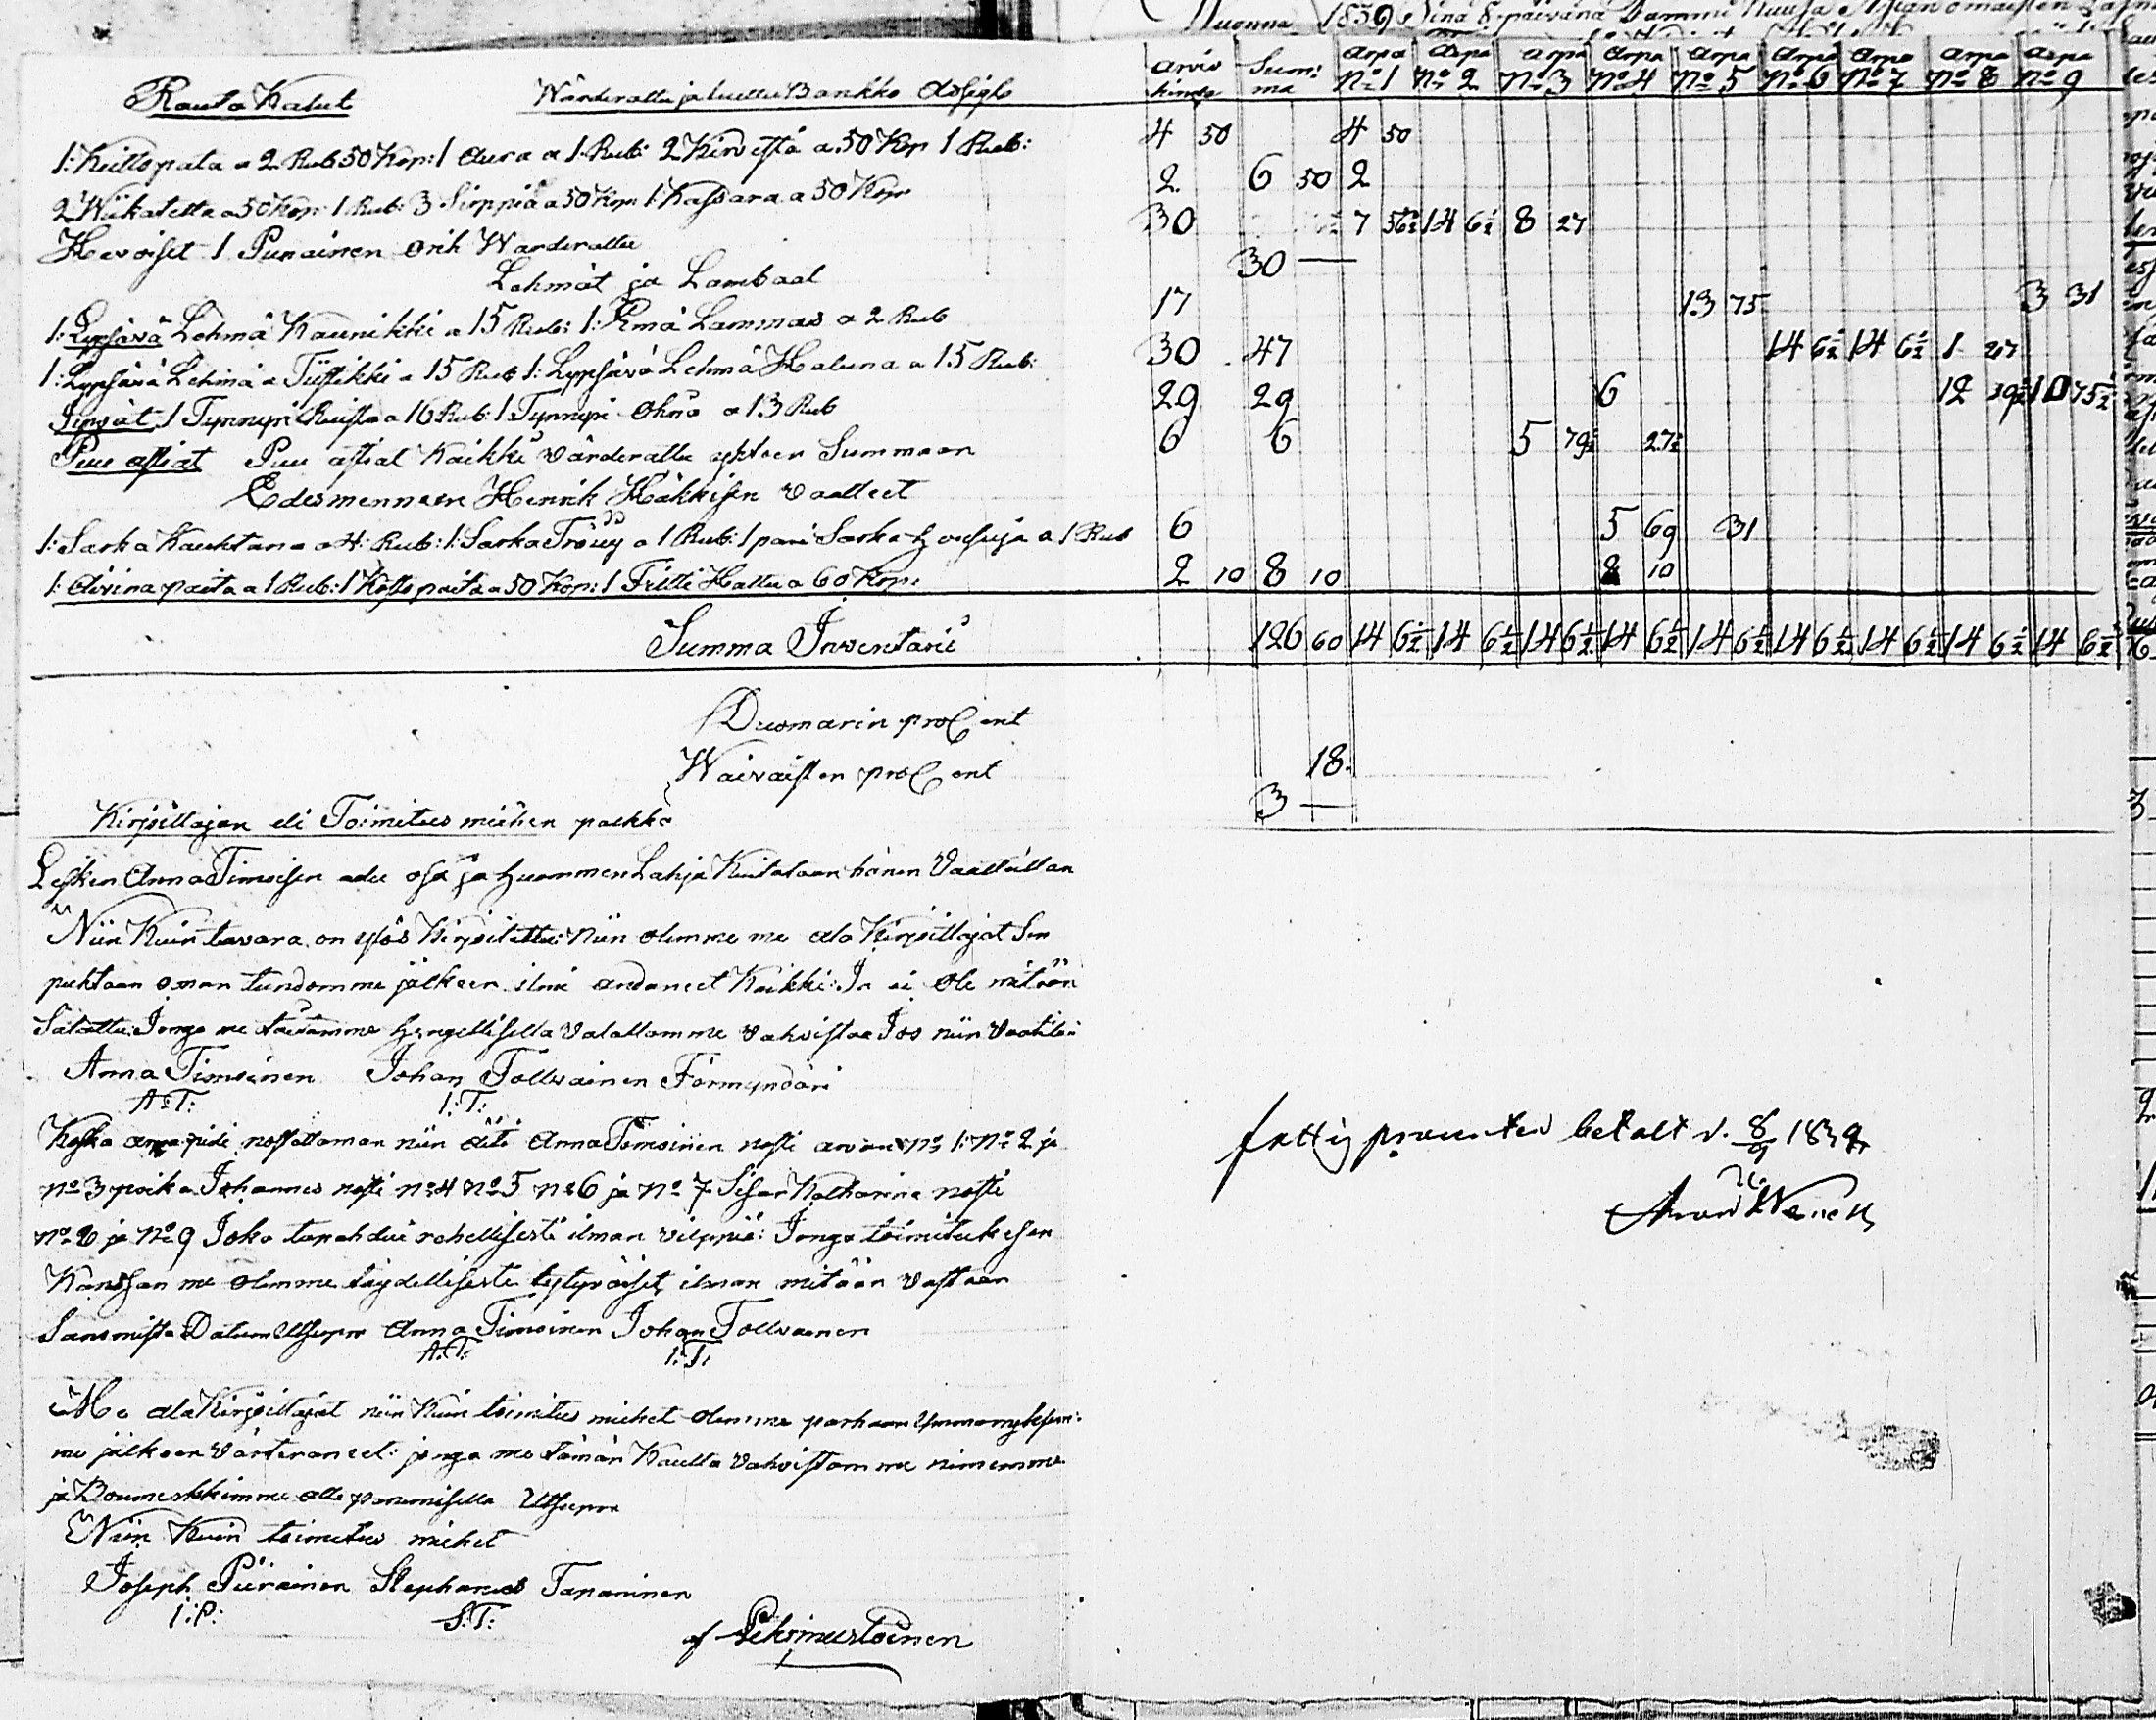 Muonna 1839 Sinä 8 päivänä Tammi Kuusa
Rauta Kalut Wärderattu ja luettu Bankko Assigls arvio hinda Summa arpa No 1 arpa No 2 arpa No 3 arpa No 4 arpa No 5 arpa No 6 arpa No 7 arpa No 8 arpa No 9
1: Keittopata a 2 Rub 50 Kop: 1 Aura a 1 Rub: 2 Kirvestä a 50 Kop 1 Rub: 4 50 4 50
2 Wiikatetta a 50 Kop: 1 Rub: 3 Sirppiä a 50 Kop: 1 Kassara a 50 Kop 2 6 50 2
Hevoiset 1 Punainen Orih Warderattu 30 7 56½ 14 6½ 8 27
30 —
Lehmät ja Lambaat
1: Lypsävä Lehmä Kaunikki a 15 Rub: 1: Emä Lammas a 2 Rub 17 13 75 3 31
1: Lypsävä Lehmä a Tüstikki a 15 Rub 1: Lypsävä Lehmä Haluna a 15 Rub: 30 47 14 6½ 14 6½ 1 27
Jyvät 1 Tynnyri Ruista a 16 Rub: 1 Tynnyri Ohra a 13 Rub 29 29 6 12 39½ 10 75½
Puu astiat Puu astiat Kaikki värderattu yhteen Summaan 6 6 5 79½ 27½
Edesmenneen Henrik Häkkisen vaatteet
1: Sarka Kauhtana a 4: Rub: 1: Sarka Tröijy a 1 Rub: 1 pari Sarka Housuja a 1 Rub 6 5 69 31
1: Aivina paita a 1 Rub: 1 Rotto paita a 50 Kop: 1 Filtti Hattu a 60 Kop: 2 10 8 10 2 10
Summa Inventarii 126 60 14 6½ 14 6½ 14 6½ 14 6½ 14 6½ 14 6½ 14 6½ 14 6½ 14 6½
Duomarin proCent
Waivaisten proCent 18.
Kirjoittajan eli Toimitus miehen palkka 3 —
Lesken Anna Timoisen etu osa ja Huommen Lahja Kuitataan hänen Vaatteillan
Niin Kuin tavara on ylös Kirjoitettu: Niin olemme me ala Kirjoittajat Sen
puhtaan oman tundomme jälkeen ilmi andaneet Kaikki: Ja ei Ole mitään
Salattu: Jonga me taidamme Hengellisella Valallamme vahvistaa Jos niin vaatitan
Anna Timoinen Johan Tollwainen Förmyndäri
A:T: I:T:
Koska arpa piti nostattaman niin äiti Anna Timoinen nosti arvan No 1: No 2 ja
No 3 poika Johannes nosti No 4 No 5 No 6 ja No 7 Sisar Katharina nosti
No 8 ja No 9 Joka tapahdui rehellisesti ilman vilppiä: Jonga toimituksen
Kanssan me olemme täydellisesti tytyväiset ilman mitään vastaan
Sanomista Datum Utsupra Anna Timoinen Johan Tollwanen
A:T: I:T:
Me ala Kirjoittajat niin Kuin toimitus miehet olemme parhaan Ymmärryksem:
me jälkeen värteraneet: jonga me tämän Kautta vahvistamme nimemme
ja Boumerkkimme alle panemisella Utsupra
Niin Kuin toimitus miehet
Joseph Piirainen Stephanus Tapaninen
I:P: S:T:
af
fattig procenten betalt d. 8/9 1839